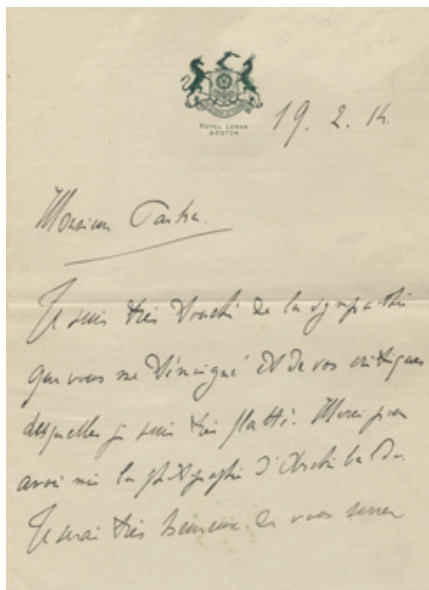 HOTEL LENOX
BOSTON
19. 2. 14.
Monsieur Parker.
Je suis très touché de la sympathie
que vous me témoigné et de vos critiques
desquelles je suis très flatté. Merci pour
avoir mis la photographie d'Archibald.
Je serai très heureux de vous serrer